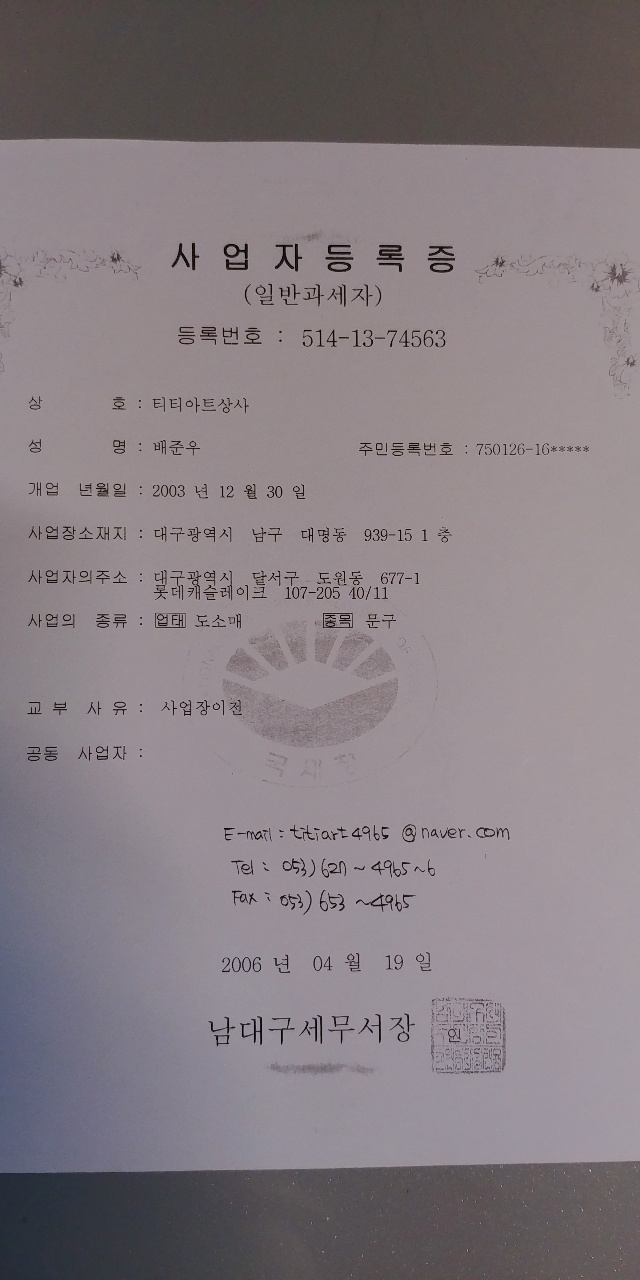 사업자등록증
(일반과세자)
등록번호 : 514-13-74563
상 호 : 티티아트상사
성 명 : 배준우 주민등록번호 : 750126-16*****
개업 년월일 : 2003 년 12 월 30 일
사업장소재지 : 대구광역시 남구 대명동 939-15 1 층
사업자의주소 : 대구광역시 달서구 도원동 677-1
롯데캐슬레이크 107-205 40/11
사업의 종류 : 업태 도소매 종목 문구
교 부 사 유 : 사업장이전
공동 사업자 :
국세청
E-mail : titiart4965 @naver.com
Tel : 053) 627 ~ 4965 ~ 6
Fax : 053) 653 ~ 4965
2006 년 04 월 19 일
남대구세무서장
인